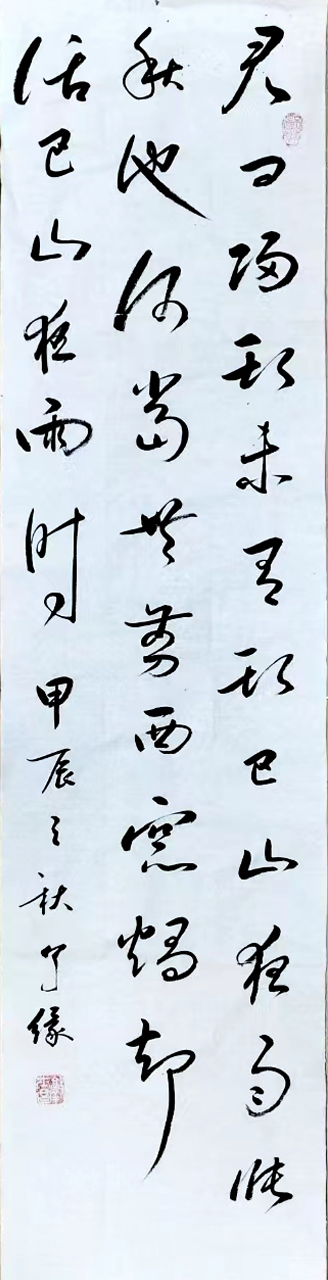 君问归期未有期巴山夜雨涨
秋池何當共剪西窓燭却
话巴山夜雨时 甲辰之秋 了缘